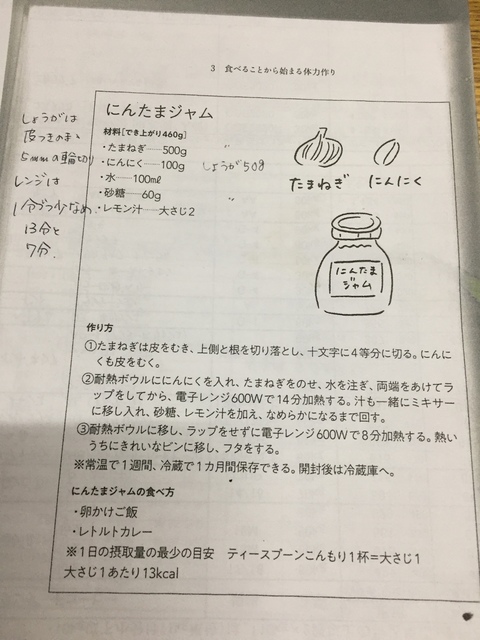 3 食べることから始まる体力作り
しょうがは
皮つきのまゝ
5mmの輪切り
レンジは
1分づつ少なめ
13分と
7分.
にんたまジャム
材料［でき上がり460g］
・たまねぎ……500g 〃
・にんにく……100g しょうが50g
・水……100mℓ
・砂糖……60g 〃
・レモン汁……大さじ2
たまねぎ にんにく
にんたま
ジャム
作り方
①たまねぎは皮をむき、上側と根を切り落とし、十文字に4等分に切る。にんに
くも皮をむく。
②耐熱ボウルににんにくを入れ、たまねぎをのせ、水を注ぎ、両端をあけてラ
ップをしてから、電子レンジ600Wで14分加熱する。汁も一緒にミキサー
に移し入れ、砂糖、レモン汁を加え、なめらかになるまで回す。
③耐熱ボウルに移し、ラップをせずに電子レンジ600Wで8分加熱する。熱い
うちにきれいなビンに移し、フタをする。
※常温で1週間、冷蔵で1カ月間保存できる。開封後は冷蔵庫へ。
にんたまジャムの食べ方
・卵かけご飯
・レトルトカレー
※1日の摂取量の最少の目安 ティースプーンこんもり1杯＝大さじ1
大さじ1あたり13kcal